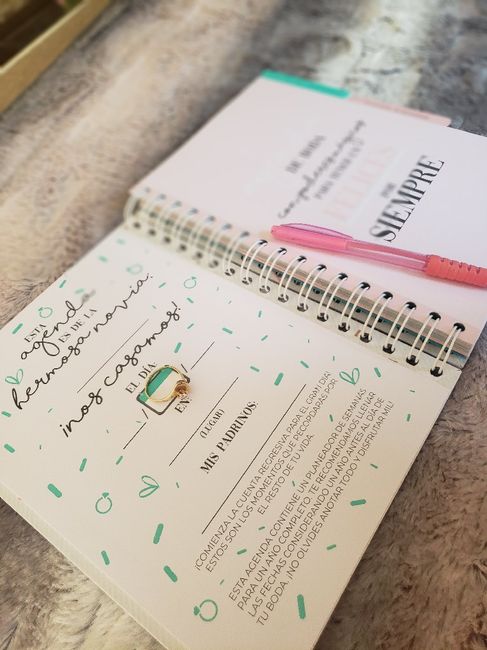 ESTA
agenda
ES DE LA
hermosa novia:
¡nos casamos!
EL DÍA:
EN
(LUGAR)
MIS PADRINOS:
¡COMIENZA LA CUENTA REGRESIVA PARA EL GRAN DÍA!
ESTOS SON LOS MOMENTOS QUE RECORDARÁS POR
EL RESTO DE TU VIDA.
ESTA AGENDA CONTIENE UN PLANEADOR DE SEMANAS
PARA UN AÑO COMPLETO. TE RECOMENDAMOS LLENAR
LAS FECHAS CONSIDERANDO UN AÑO ANTES AL DÍA DE
TU BODA. ¡NO OLVIDES ANOTAR TODO Y DISFRUTAR MIL!
DE BODA
PARA
FELICES
POR
SIEMPRE